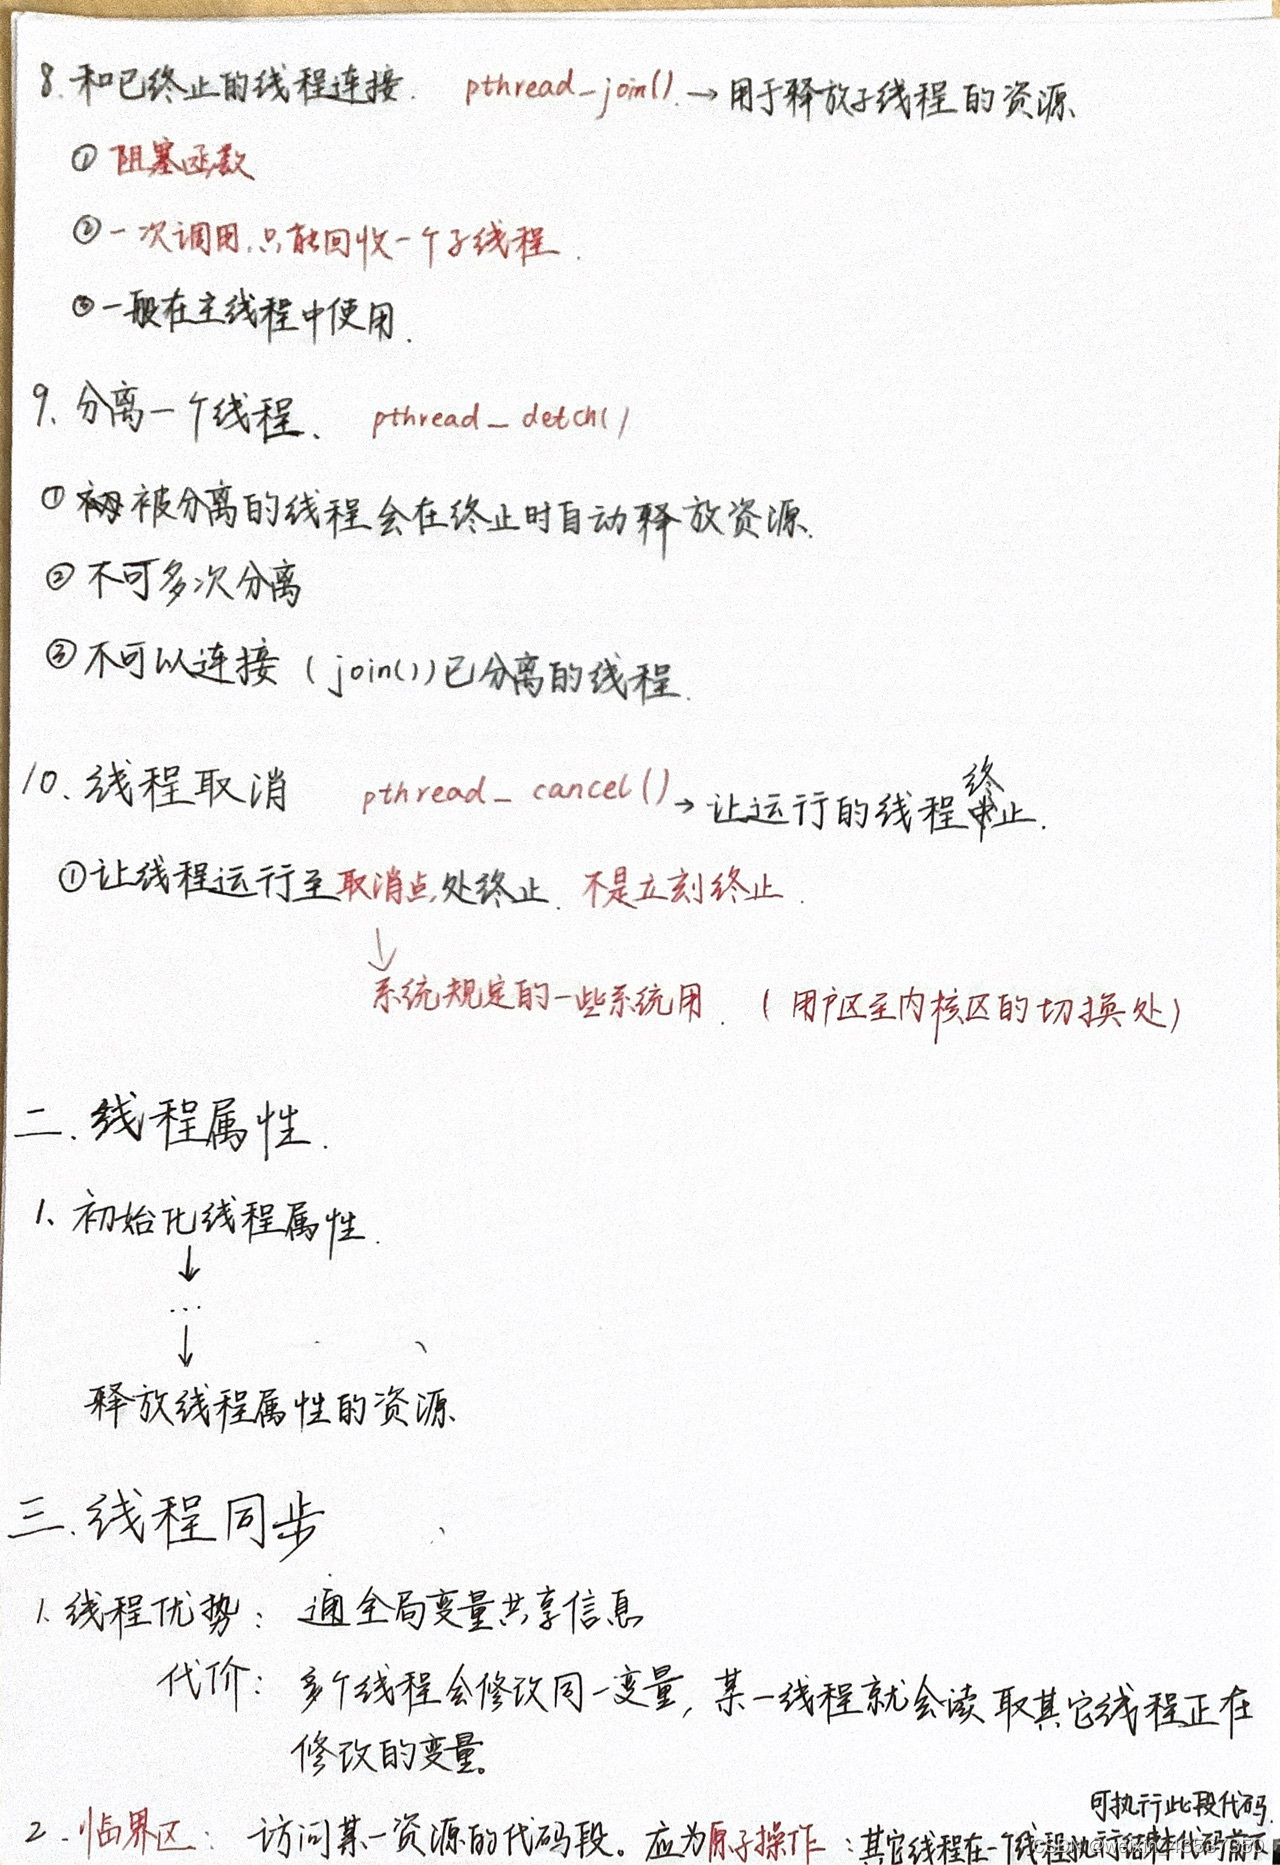 8. 和已终止的线程连接. pthread_join(). → 用于释放子线程的资源.
① 阻塞函数
② 一次调用,只能回收一个子线程.
③ 一般在主线程中使用.
9. 分离一个线程、 pthread_detch()
① 被分离的线程会在终止时自动释放资源.
② 不可多次分离
③ 不可以连接 (join())已分离的线程.
10. 线程取消 pthread_cancel() → 让运行的线程终止.
① 让线程运行至取消点,处终止. 不是立刻终止.
↓
系统规定的一些系统用. (用户区至内核区的切换处)
二. 线程属性.
1、初始化线程属性.
↓
...
↓
释放线程属性的资源.
三. 线程同步
1. 线程优势: 通全局变量共享信息
代价: 多个线程会修改同一变量, 某一线程就会读取其它线程正在
修改的变量。
可执行此段代码.
2. 临界区: 访问某一资源的代码段。应为原子操作: 其它线程在一个线程执行结束代码前不